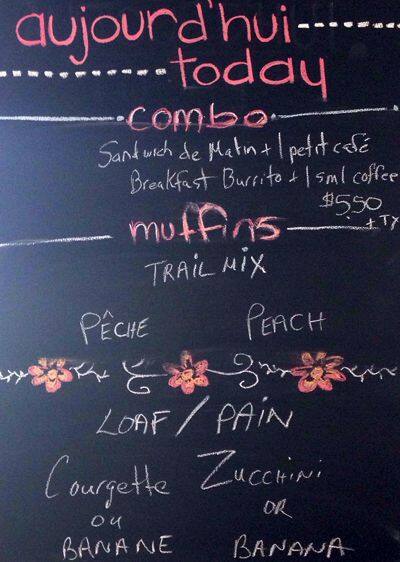 aujourd'hui
today
combo
Sandwich de Matin + 1 petit café
Breakfast Burrito + 1 sml coffee
$5.50
+ TX
muffins
TRAIL MIX
PÊCHE PEACH
LOAF / PAIN
Courgette Zucchini
ou OR
BANANE BANANA